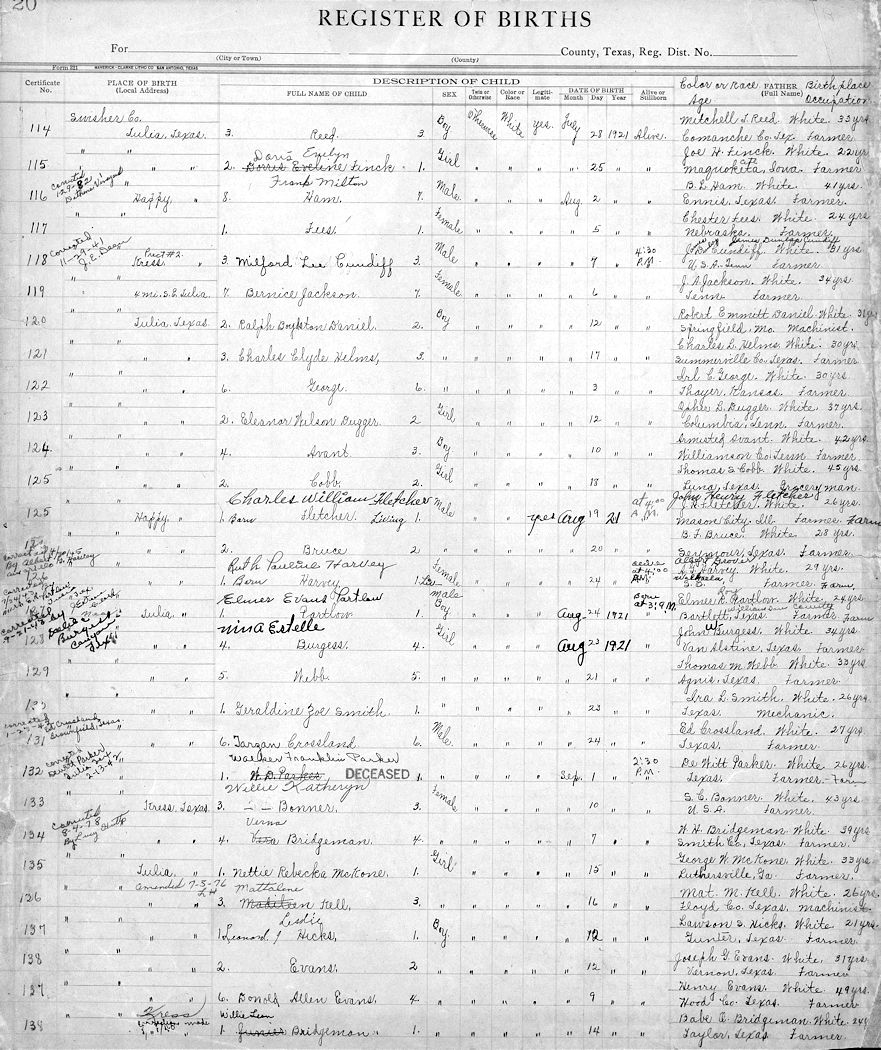 20
REGISTER OF BIRTHS
For
(City or Town)
(County)
County, Texas, Reg. Dist. No.
Form 221 MAVERICK-CLARKE LITHO CO SAN ANTONIO, TEXAS
Certificate No.
PLACE OF BIRTH (Local Address)
DESCRIPTION OF CHILD
FULL NAME OF CHILD
SEX
Twin or Otherwise
Color or Race
Legitimate
DATE OF BIRTH
Month Day Year
Alive or Stillborn
Color or Race FATHER Birthplace
Age (Full Name) Occupation
Swisher Co. Mitchell J. Reed. White. 33 yrs.
114 Tulia, Texas. 3. Reed. 3. Boy Otherwise White yes. July 28 1921 Alive. Comanche Co. Tex. Farmer
Doris Evelyn Joe H. Finck. White 22 yrs
115 " " 2. Dorris Eveline Finck 1. Girl " " " " 25 " " Magnoketa, Iowa. Farmer
corrected
Frank Milton B. L. Ham. White. 41 yrs.
116 Happy, " 8. Ham. 7. Male " " " Aug 2 " " Ennis, Texas. Farmer.
Chester Fees. White. 24 yrs.
117 " " 1. Fees. 1. Female " " " " 5 " " Nebraska. Farmer.
Corrected 11-29-41
James Dunlap Cundiff
J. B. Cundiff. White. 31 yrs.
118 Prect #2. Kress. " 3. Milford Lee Cundiff 3. Male " " " " 7 " 4:30 P.M. U.S.A. Tenn Farmer.
J. A. Jackson. White. 34 yrs.
119 4 mi. S.E. Tulia. 7. Bernice Jackson. 7. Female " " " " 6 " " Tenn. Farmer.
Robert Emmitt Daniel. White. 31 yrs
120 Tulia, Texas. 2. Ralph Boylston Daniel. 2. Boy " " " " 12 " " Springfield, Mo. Machinist.
Charles L. Helms, White. 30 yrs.
121 " " 3. Charles Clyde Helms, 3. " " " " " 17 " " Summerville Co. Texas. Farmer.
Irl C. George. White. 30 yrs.
122 " " 6. George. 6. " " " " " 3 " " Thayer, Kansas. Farmer.
Dugger. White. 37 yrs.
123 " " 2. Eleanor Wilson Dugger. 2 Girl " " " " 12 " " Columbia, Tenn. Farmer.
Armisted Avant. White. 42 yrs.
124. " " 4. Avant 3. Boy " " " " 10 " " Williamson Co. Tenn. Farmer.
Thomas S. Cobb. White. 45 yrs.
125 " " 2. Cobb. 2. Girl " " " " 18 " " Luna, Texas. Groceryman.
Charles William Fletcher John Henry Fletcher
J. H. Fletcher. White. 26 yrs.
125 Happy " 1. Born Fletcher. Living 1. Male " " yes Aug 19 21 at 4:00 A.M. Mason City, Ill. Farmer. Farm
B. F. Bruce. White. 28 yrs.
" " 2. Bruce 2. " " " " " 20 " " Seymour, Texas. Farmer.
Ruth Pauline Harvey Albert Grover
Harvey. White. 29 yrs.
" " 1. Born Harvey. 1. Female " " " " 24 " " at 4:00 A.M. Farmer. Farm
Elmer Evans Partlow
Elmer R. Partlow. White. 24 yrs.
Tulia " 1. Partlow 1. Male Boy " " " Aug 24 1921 Born at 3:9 M. Bartlett, Texas. Farmer Farm
Williamson County
corrected
Nina Estelle John Burgess. White. 34 yrs.
128 " " 4. Burgess. 4. Girl " " " Aug 23 1921 " Van Alstine, Texas. Farmer
Thomas M. Webb. White. 33 yrs.
129 " " 5. Webb. 5. " " " " " 21 " " Agnis, Texas. Farmer.
Ira L. Smith. White. 26 yrs.
" " 1. Geraldine Zoe Smith. 1. " " " " " 23 " " Texas. Mechanic.
corrected
Ed Crossland. White. 27 yrs.
131 " " 6. Targan Crossland 6. Male " " " " 24 " " Texas. Farmer.
Walker Franklin Parker De Witt Parker. White. 26 yrs.
132 " " 1. W. D. Parker, DECEASED 1. " " " " Sep. 1 " 2:30 P.M. Texas. Farmer - Farm
Dewitt Parker Tulia 2-13-42
Willie Katheryn S. C. Bonner. White. 43 yrs.
133 Kress, Texas. 3. - - Bonner. 3. Female " " " " 10 " " U.S.A. Farmer.
corrected 8-4-78
Verna W. H. Bridgeman. White. 39 yrs.
134 " " 4. Vera Bridgeman. 4. " " " " " 7 " " Smith Co. Texas. Farmer.
George W. McKone. White. 33 yrs.
135 Tulia. " 1. Nettie Rebecka McKone. 1. Girl " " " " 15 " " Luthersville, Ga. Farmer.
amended 7-5-76 Mattalene Mat. M. Kell. White. 26 yrs.
136 " " 3. Kell, 3. " " " " " 16 " " Floyd Co. Texas. Machinist.
Leslie Lawson S. Hicks. White. 21 yrs.
137 " " 1. Leonard / Hicks, 1. Boy " " " " 12 " " Gunter, Texas. Farmer.
Joseph G. Evans. White. 31 yrs.
138 " " 2. Evans. 2 " " " " " 12 " " Vernon, Texas. Farmer
Henry Evans. White. 49 yrs.
137 " " 6. Donold Allen Evans. 4 " " " " " 9 " " Wood Co. Texas. Farmer
Kress Willie Leon Babe A. Bridgeman. White. 24
138 1. Junior Bridgemon " 1. " " " " " 14 " " Taylor, Texas. Farmer.